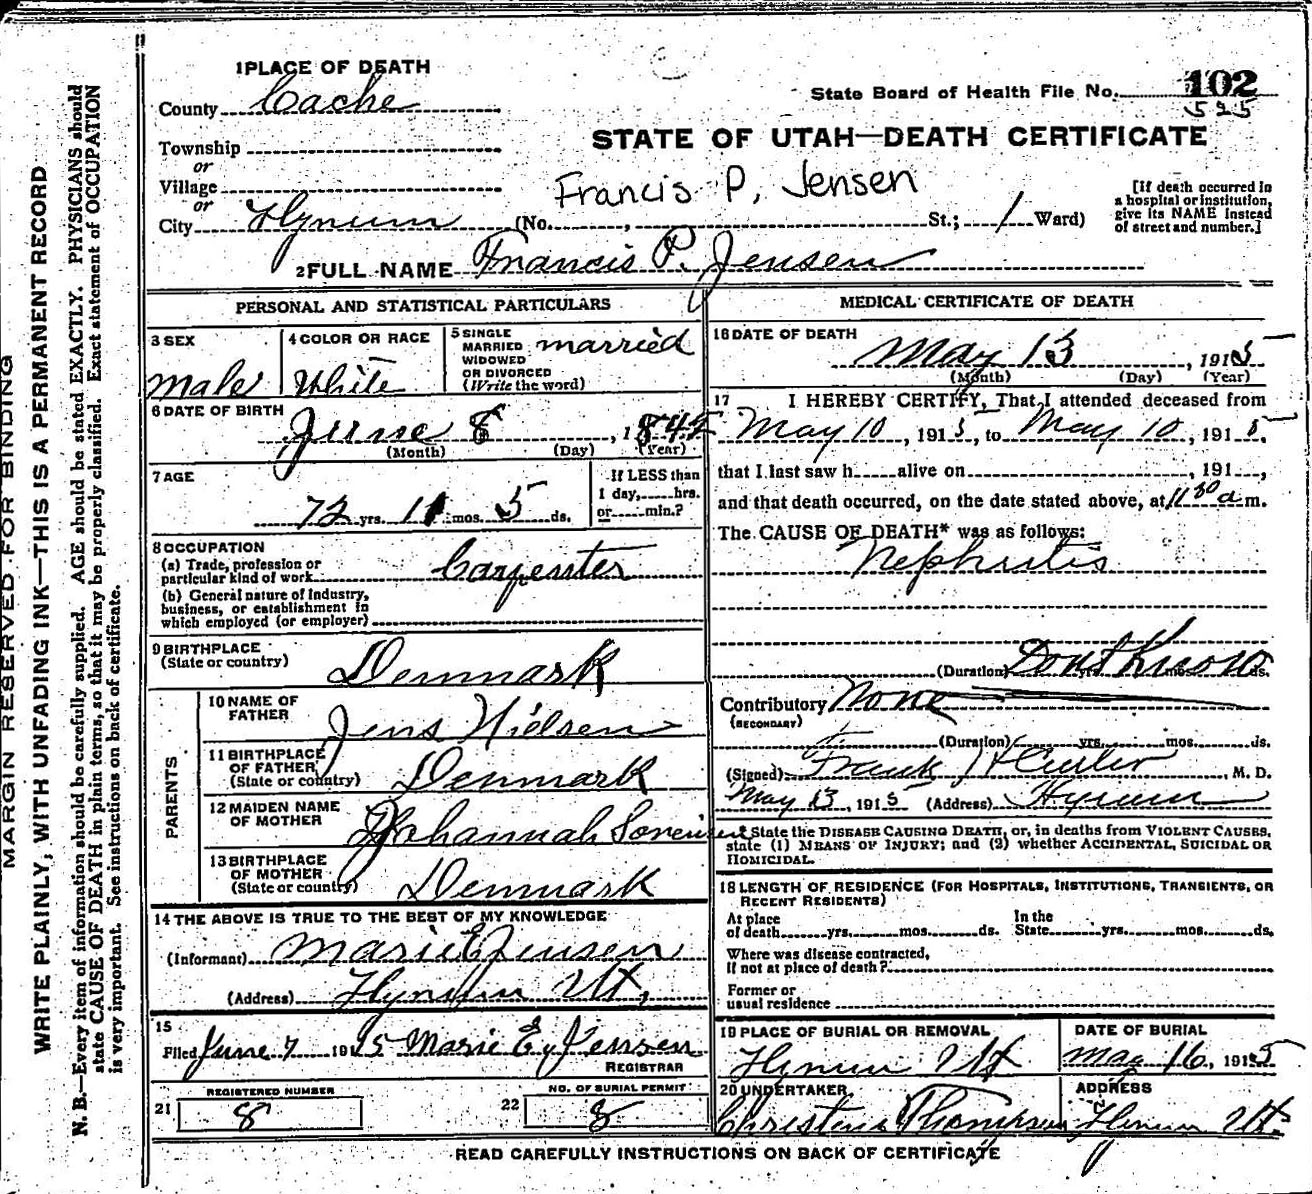 MARGIN RESERVED FOR BINDING
WRITE PLAINLY, WITH UNFADING INK—THIS IS A PERMANENT RECORD
N. B.—Every item of information should be carefully supplied. AGE should be stated EXACTLY. PHYSICIANS should
state CAUSE OF DEATH in plain terms, so that it may be properly classified. Exact statement of OCCUPATION
is very important. See instructions on back of certificate.
1 PLACE OF DEATH
County Cache
State Board of Health File No. 102
525
STATE OF UTAH—DEATH CERTIFICATE
Township
or
Village
or
City Hyrum (No. , St.; 1 Ward)
Francis P. Jensen
[If death occurred in
a hospital or institution,
give its NAME instead
of street and number.]
2 FULL NAME Francis P. Jensen
PERSONAL AND STATISTICAL PARTICULARS
3 SEX
male
4 COLOR OR RACE
White
5 SINGLE
MARRIED
WIDOWED
OR DIVORCED
(Write the word)
married
6 DATE OF BIRTH
June 8, 1842
(Month) (Day) (Year)
7 AGE
72 yrs. 11 mos. 5 ds.
If LESS than
1 day, hrs.
or min.?
8 OCCUPATION
(a) Trade, profession or
particular kind of work Carpenter
(b) General nature of industry,
business, or establishment in
which employed (or employer)
9 BIRTHPLACE
(State or country) Denmark
PARENTS
10 NAME OF
FATHER Jens Nielsen
11 BIRTHPLACE
OF FATHER
(State or country) Denmark
12 MAIDEN NAME
OF MOTHER Johannah Sorensen
13 BIRTHPLACE
OF MOTHER
(State or country) Denmark
14 THE ABOVE IS TRUE TO THE BEST OF MY KNOWLEDGE
(Informant) Marie E Jensen
(Address) Hyrum Ut.
15
Filed June 7 1915 Marie E Jensen
REGISTRAR
21 REGISTERED NUMBER
8
22 NO. OF BURIAL PERMIT
8
MEDICAL CERTIFICATE OF DEATH
16 DATE OF DEATH
May 13, 1915
(Month) (Day) (Year)
17 I HEREBY CERTIFY, That I attended deceased from
May 10, 1915, to May 10, 1915.
that I last saw h alive on , 191 ,
and that death occurred, on the date stated above, at 11 30 a m.
The CAUSE OF DEATH* was as follows:
Nephritis
(Duration) Dont Know yrs. mos. ds.
Contributory None
(SECONDARY)
(Duration) yrs. mos. ds.
(Signed) Frank H Cutler, M. D.
May 13, 1915 (Address) Hyrum
* State the DISEASE CAUSING DEATH, or, in deaths from VIOLENT CAUSES,
state (1) MEANS OF INJURY; and (2) whether ACCIDENTAL, SUICIDAL OR
HOMICIDAL.
18 LENGTH OF RESIDENCE (FOR HOSPITALS, INSTITUTIONS, TRANSIENTS, OR
RECENT RESIDENTS)
At place
of death yrs. mos. ds.
In the
State yrs. mos. ds.
Where was disease contracted,
if not at place of death?
Former or
usual residence
19 PLACE OF BURIAL OR REMOVAL
Hyrum Ut
DATE OF BURIAL
May 16, 1915
20 UNDERTAKER
Thompson
ADDRESS
Hyrum Ut.
READ CAREFULLY INSTRUCTIONS ON BACK OF CERTIFICATE